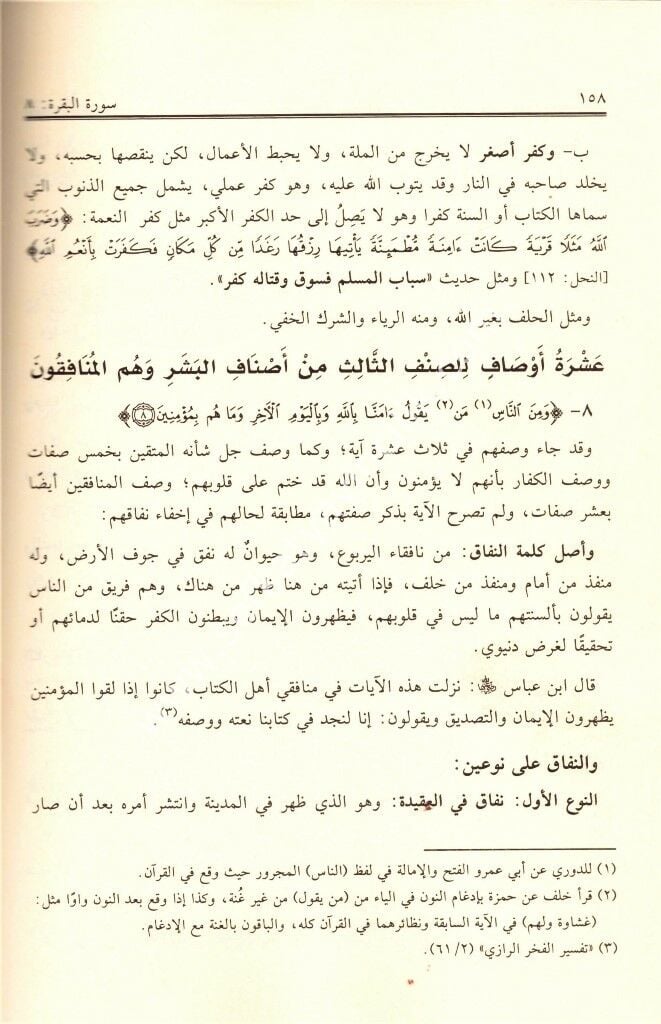 ١٥٨
سورة البقرة: ٨
ب- وكفر أصغر لا يخرج من الملة، ولا يحبط الأعمال، لكن ينقصها بحسبه، ولا
يخلد صاحبه في النار وقد يتوب الله عليه، وهو كفر عملي، يشمل جميع الذنوب التي
سماها الكتاب أو السنة كفرا وهو لا يَصِلُ إلى حد الكفر الأكبر مثل كفر النعمة: ﴿وَضَرَبَ
اللَّهُ مَثَلًا قَرْيَةً كَانَتْ ءَامِنَةً مُّطْمَئِنَّةً يَأْتِيهَا رِزْقُهَا رَغَدًا مِّن كُلِّ مَكَانٍ فَكَفَرَتْ بِأَنْعُمِ اللَّهِ﴾
[النحل: ١١٢] ومثل حديث «سباب المسلم فسوق وقتاله كفر».
ومثل الحلف بغير الله، ومنه الرياء والشرك الخفي.
عَشْرَةُ أَوْصَافٍ لِلصِنْفِ الثَّالِثِ مِنْ أَصْنَافِ البَشَرِ وَهُم المُنَافِقُونَ
٨- ﴿وَمِنَ النَّاسِ(١) مَن(٢) يَقُولُ ءَامَنَّا بِاللَّهِ وَبِالْيَوْمِ الْآخِرِ وَمَا هُم بِمُؤْمِنِينَ ٨﴾
وقد جاء وصفهم في ثلاث عشرة آية؛ وكما وصف جل شأنه المتقين بخمس صفات
ووصف الكفار بأنهم لا يؤمنون وأن الله قد ختم على قلوبهم؛ وصف المنافقين أيضًا
بعشر صفات، ولم تصرح الآية بذكر صفتهم، مطابقة لحالهم في إخفاء نفاقهم:
وأصل كلمة النفاق: من نافقاء اليربوع، وهو حيوانٌ له نفق في جوف الأرض، وله
منفذ من أمام ومنفذ من خلف، فإذا أتيته من هنا ظهر من هناك، وهم فريق من الناس
يقولون بألسنتهم ما ليس في قلوبهم، فيظهرون الإيمان ويبطنون الكفر حقنًا لدمائهم أو
تحقيقًا لغرض دنيوي.
قال ابن عباس ﵁: نزلت هذه الآيات في منافقي أهل الكتاب، كانوا إذا لقوا المؤمنين
يظهرون الإيمان والتصديق ويقولون: إنا لنجد في كتابنا نعته ووصفه(٣).
والنفاق على نوعين:
النوع الأول: نفاق في العقيدة: وهو الذي ظهر في المدينة وانتشر أمره بعد أن صار
(١) للدوري عن أبي عمرو الفتح والإمالة في لفظ (الناس) المجرور حيث وقع في القرآن.
(٢) قرأ خلف عن حمزة بإدغام النون في الياء من (من يقول) من غير غُنة، وكذا إذا وقع بعد النون واوًا مثل:
(غشاوة ولهم) في الآية السابقة ونظائرهما في القرآن كله، والباقون بالغنة مع الإدغام.
(٣) «تفسير الفخر الرازي» (٢/ ٦١).